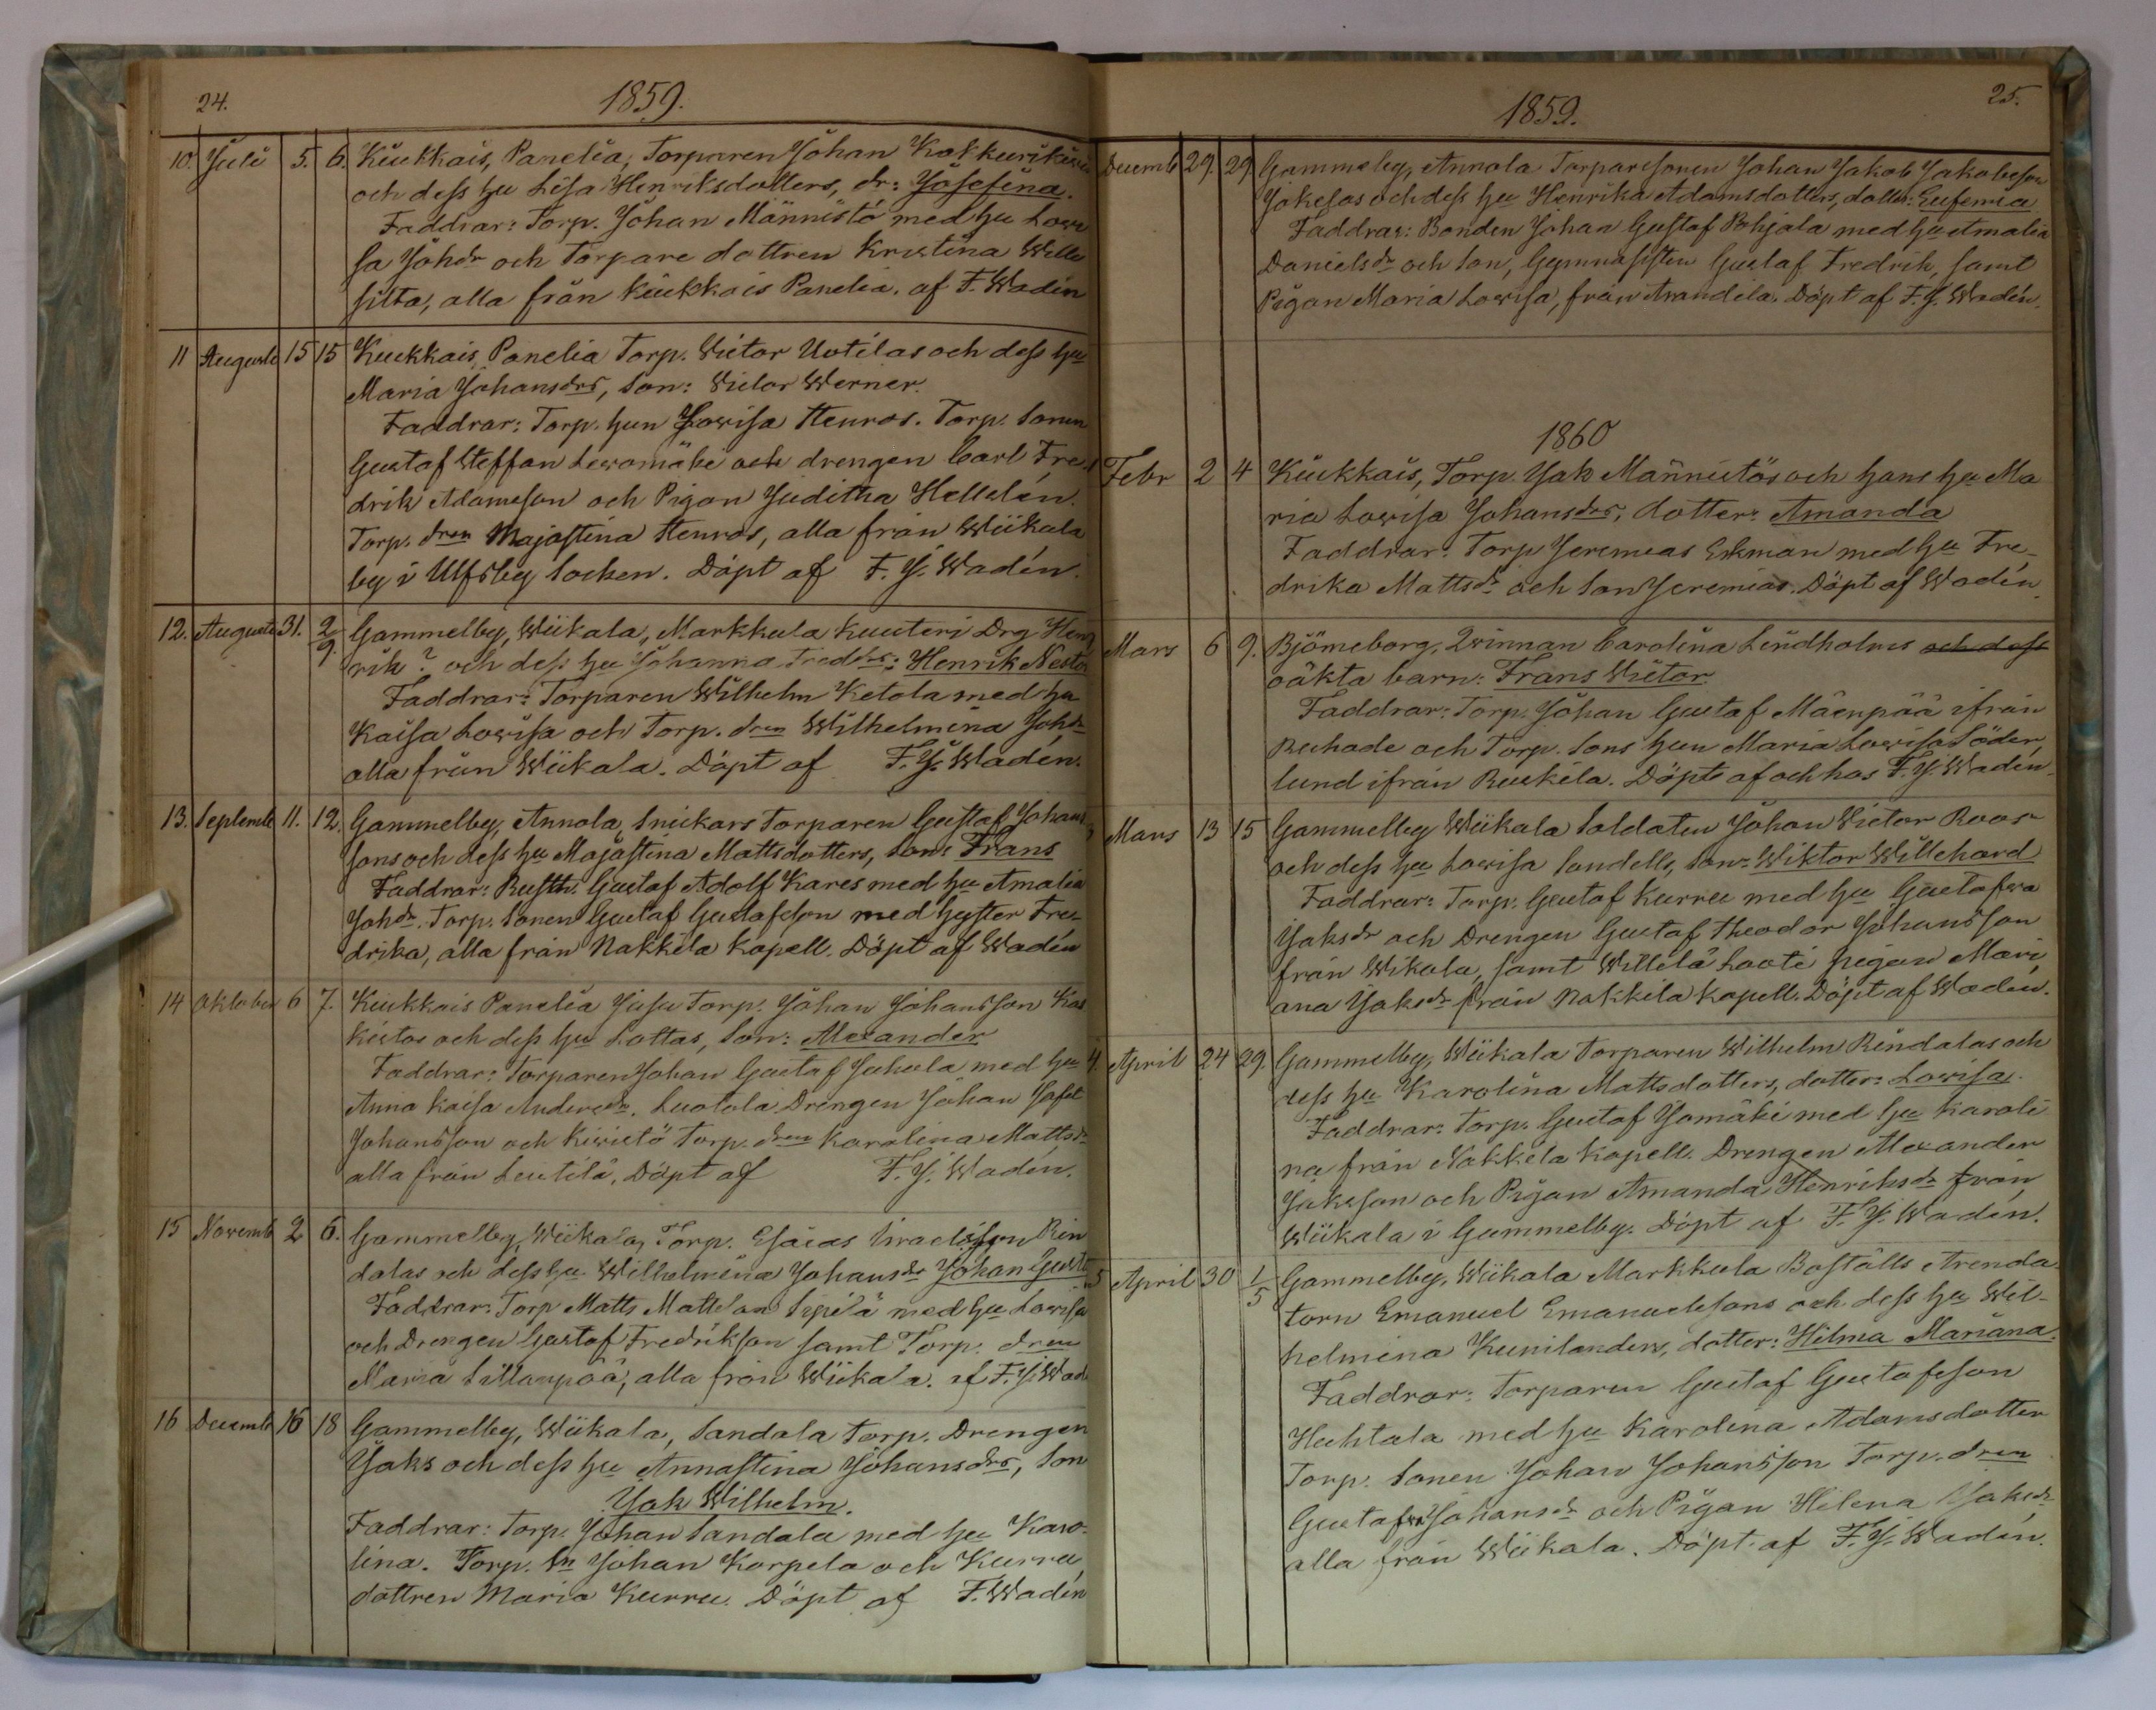 24.
1859.
10. Juli 5. 6. Kiukkais, Panelia, Torparen Johan
och dess hu Lisa Henriksdotters, dr: Josefina.
Faddrar: Torp. Johan Männistö med hu Lowi
sa Johdr och Torpare dottren Kristina Wille
silta, alla från Kiukkais Panelia. af F. Wadén
11 Augusti 15 15 Kiukkais, Panelia Torp. Victor Uotilas och dess hu
Maria Johansdrs, Son: Victor Werner.
Faddrar: Torp. hun Lowisa Henros. Torp. Sonen
Gustaf Steffan Lewomäki och drengen Carl Fre
drik Adamsson och Pigan Juditha Hellelén.
Torp. dren Majastina Henros, alla från Wiikala
by i Ulfsby Socken. Döpt af F. J. Wadén.
12. Augusti 31. 2/9. Gammelby, Wiikala, Markkula Kuuteri Drg Hen
rik? och dess hu Johanna Fredrs: Henrik Nestor
Faddrar: Torparen Wilhelm Ketola med hu
Kaisa Lowisa och Torp. dren Wilhelmina Johdr
alla från Wiikala. Döpt af F. J. Wadén.
13. Septemb 11. 12. Gammelby, Annola, Snickars Torparen Gustaf Johans
sons och dess hu Majastina Mattsdotters, Son: Frans
Faddrar: Rusth. Gustaf Adolf Kares med hu Amalia
Johdr. Torp. Sonen Gustaf Gustafsson med hyster Fre-
drika, alla från Nakkila Kapell. Döpt af Wadén
14 Oktober 6 7. Kiukkais Panelia Jusu Torp. Johan Johansson Kas
kistos och dess hu Lottas, Son: Alexander
Faddrar: Torparen Johan Gustaf Juhola med hu
Anna Kaisa Andersdr. Luotola Drengen Johan Jafet
Johansson och Kiwistö Torp. dren Karolina Mattsdr
alla från Leutilä, Döpt af F. J. Wadén.
15 Novemb 2 6. Gammelby, Wiikala, Torp. Esaias Israelsson Rin
dalas och dess hu Wilhelmina Johansdr Johan Gust
Faddrar: Torp Matts Mattsson Sipilä med hu Lowisa
och Drengen Gustaf Fredriksson samt Torp. dren
Maria Sillanpää, alla från Wiikala. af F. J. Wad
16 Decemb 16 18 Gammelby, Wiikala, Sandala Torp. Drengen
Jaks och dess hu Annastina Johansdrs, Son
Jak Wilhelm.
Faddrar: Torp. Johan Sandala med hu Karo-
lina. Torp. Sn Johan Korpela och Kurru
dottren Maria Kurru. Döpt af F. Wadén
25.
1859.
Decemb 29. 29. Gammelby, Annola Torparesonen Johan Jakob Jakobsson
Jokelas och dess hu Henrika Adamsdotters, dotter: Eufemia
Faddrar: Bonden Johan Gustaf Pohjala med hu Amalia
Danielsdr och Son, Gymnasisten Gustaf Fredrik, samt
Pigan Maria Lowisa, från Arandila. Döpt af F. J. Wadén.
1860
Febr 2 4 Kiukkais, Torp Jak Männistös och hans hu Ma
ria Lowisa Johansdrs, dotter: Amanda
Faddrar: Torp Jeremias Ekman med hu Fre-
drika Mattsdr och Son Jeremias. Döpt af Wadén.
Mars 6 9. Björneborg, Qvinnan Carolina Lindholms och dess
oäkta barn: Frans Wictor
Faddrar: Torp. Johan Gustaf Mäenpää ifrån
Ruhade och Torp. Sons hun Maria Lowisa Söder
lund ifrån Ruskila. Döpts af och hos F. J. Wadén.
Mars 13 15 Gammelby Wiikala Soldaten Johan Victor Roos
och dess hu Lowisa Sandells, Son: Wiktor Willehard
Faddrar: Torp. Gustaf Kurru med hu Gustafva
Jaksdr och Drengen Gustaf Theodor Johansson
från Wikala, samt Willilä Looti pigan Mari
ana Jaksdr från Nakkila Kapell. Döpt af Wadén.
4. April 24 29. Gammelby, Wiikala Torparen Wilhelm Rindalas och
dess hu Karolina Mattsdotters, dotter: Lowisa.
Faddrar: Torp. Gustaf Jomäki med hu Karoli
na från Nakkila Kapell. Drengen Alexander
Jaksson och Pigan Amanda Henriksdr från
Wiikala i Gammelby. Döpt af F. J. Wadén.
5 April 30 1/5 Gammelby, Wiikala Markkula Boställs Arenda
torn Emanuel Emanuelsons och dess hu Wil-
helmina Kunilanders, dotter: Hilma Mariana.
Faddrar: Torparen Gustaf Gustafsson
Huhtala med hu Karolina Adamsdotter
Torp. Sonen Johan Johansson Torp. dren
Gustafva Johansdr och Pigan Helena Jaksdr
alla från Wiikala. Döpt af F. J. Wadén.